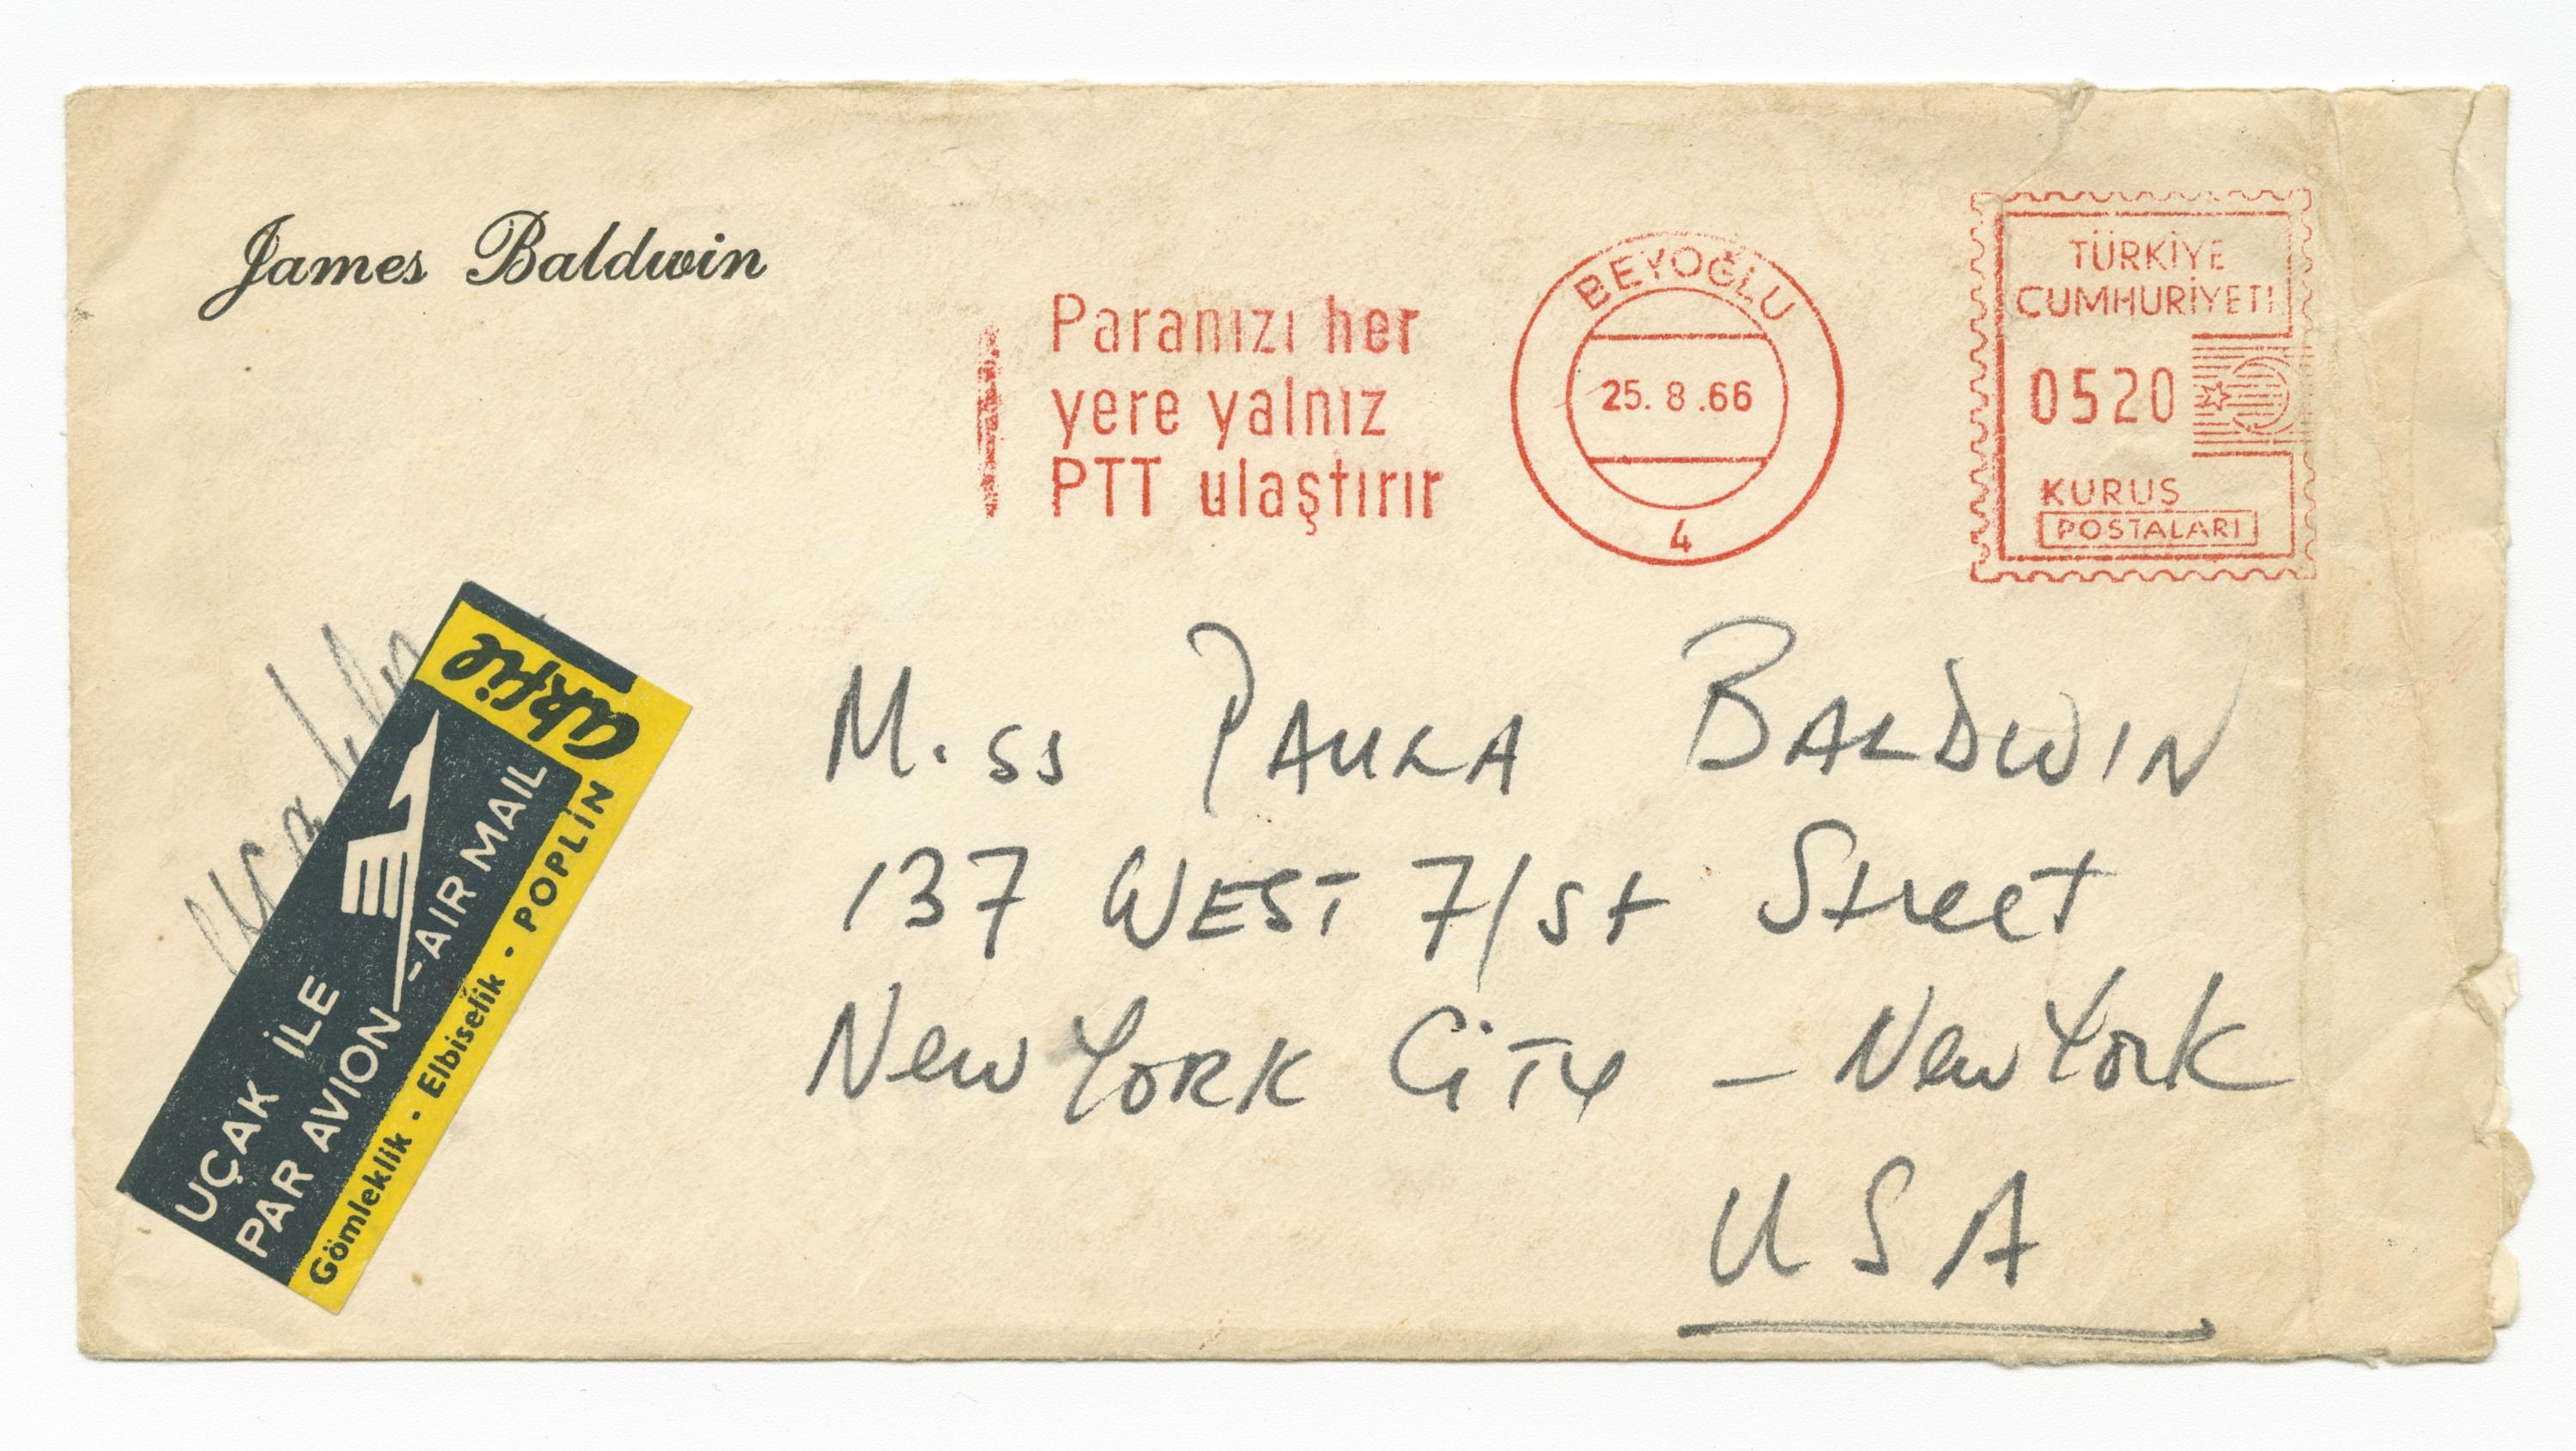 James Baldwin
Paranızı her
yere yalnız
PTT ulaştırır
BEYOĞLU
25.8.66
4
TÜRKİYE
CUMHURİYETİ
0520
KURUŞ
POSTALARI
akfil
UÇAK İLE
PAR AVION - AIR MAIL
Gömleklik • Elbiselik • POPLİN
Miss PAULA BALDWIN
137 WEST 71st Street
New YORK CiTy - New York
USA